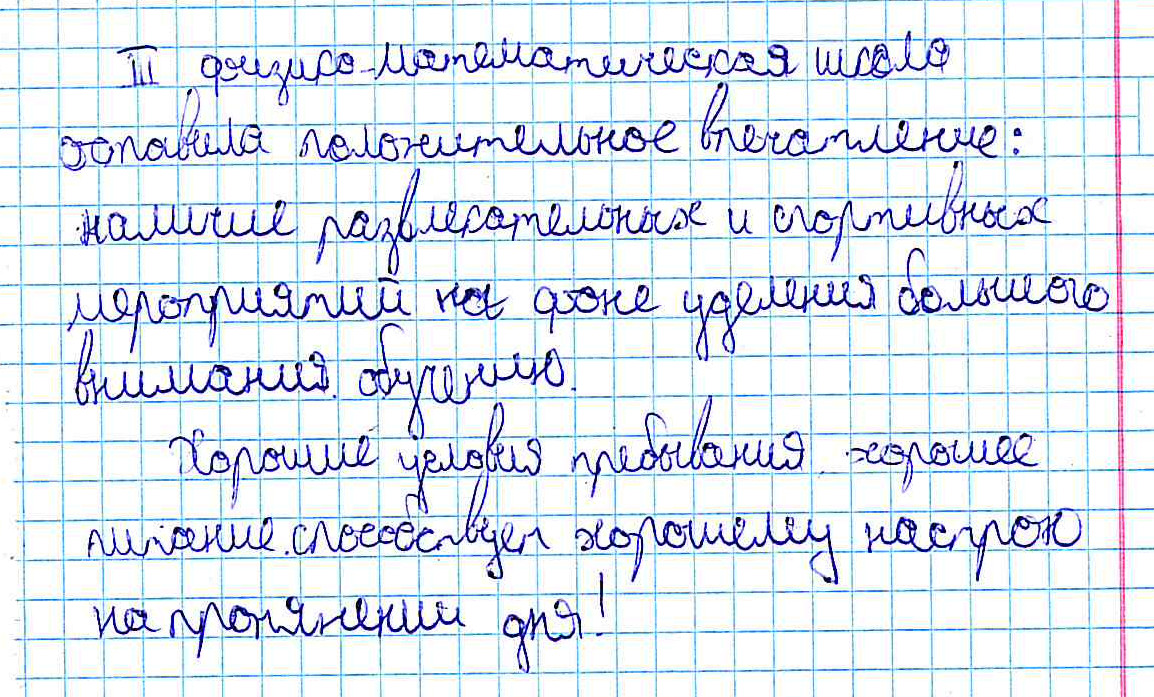 III физико-математическая школа
оставила положительное впечатление:
наличие развлекательных и спортивных
мероприятий на фоне уделения большого
внимания обучению.
Хорошие условия пребывания хорошее
питание способствует хорошему настрою
на протяжении дня!